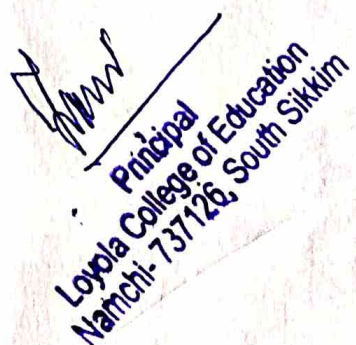 Principal
Loyola College of Education
Namchi- 737126, South Sikkim